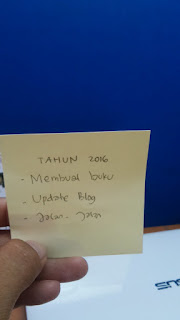 TAHUN 2016
- Membuat buku
- Update Blog
- Jalan-Jalan